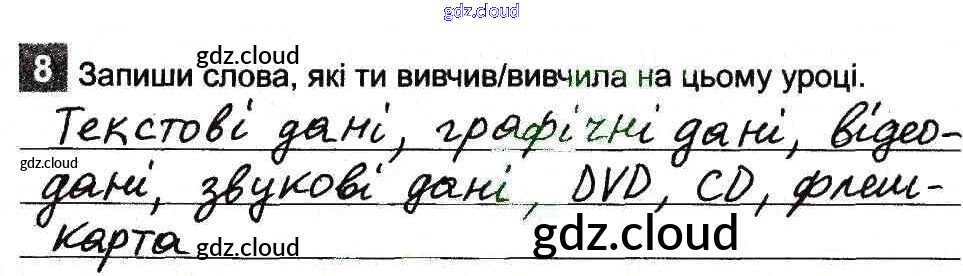 gdz.cloud
gdz.cloud
8 Запиши слова, які ти вивчив/вивчила на цьому уроці.
Текстові дані, графічні дані, відео-
gdz.cloud
дані, звукові дані, DVD, CD, флеш-
карта
gdz.cloud
gdz.cloud